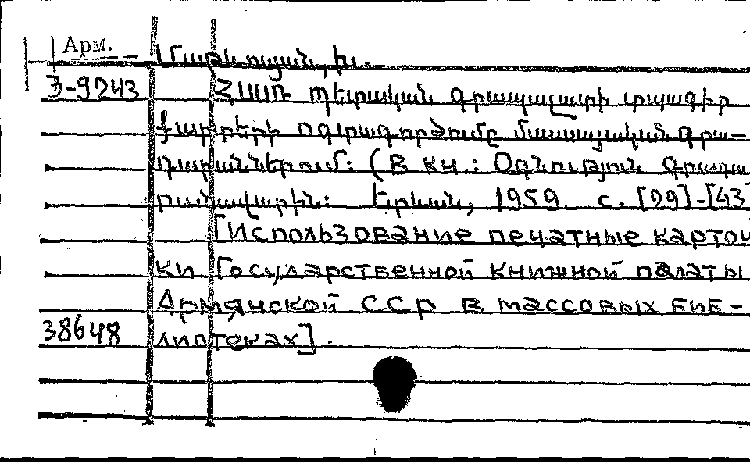 Арм.
Մաթևոսյան, Խ.
З-9243 ՀՍՍՌ պետական գրապալատի տպագիր
քարտերի օգտագործումը մասսայական գրա-
դարաններում: (В кн.: Օգնություն գրադա
րանավարին: Երևան, 1959 с. [29]-[43
[Использование печатные карточ
ки Государственной книжной палаты
Армянской ССР в массовых биб-
38648 лиотеках].